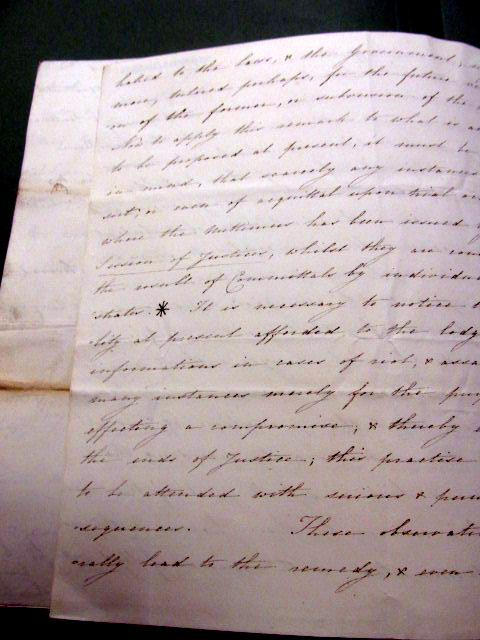 hated to the laws, & the Government,
more, tutored perhaps, for the future
of the former, or subversion of the
to apply this remark to what is
to be proposed at present, it must be
in mind, that scarcely any instances
in case of acquittal upon trial
when the Mittimus has been issued
Session of Justices, whilst they are
the result of Committals by individua
strates. * It is necessary to notice
lity at present afforded to the lodg
informations in cases of riot, & assa
many instances merely for the pur
effecting a compromise, & thereby
the ends of Justice; this practise
to be attended with serious &
sequences. These observati
rally lead to the remedy, & even